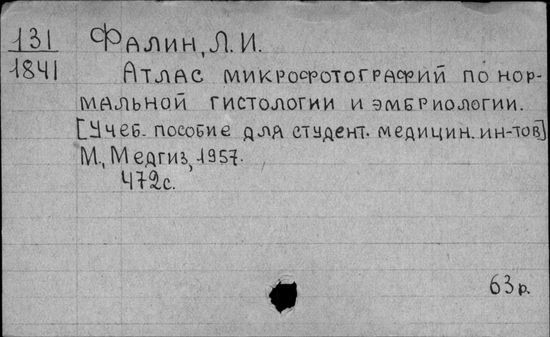 131 Фалин, Л. И.
1841 Атлас микрофотографий по нор-
мальной гистологии и эмбриологии.
[Учеб. пособие для студент. медицин. ин-тов]
М., Медгиз, 1957.
472с.
63р.